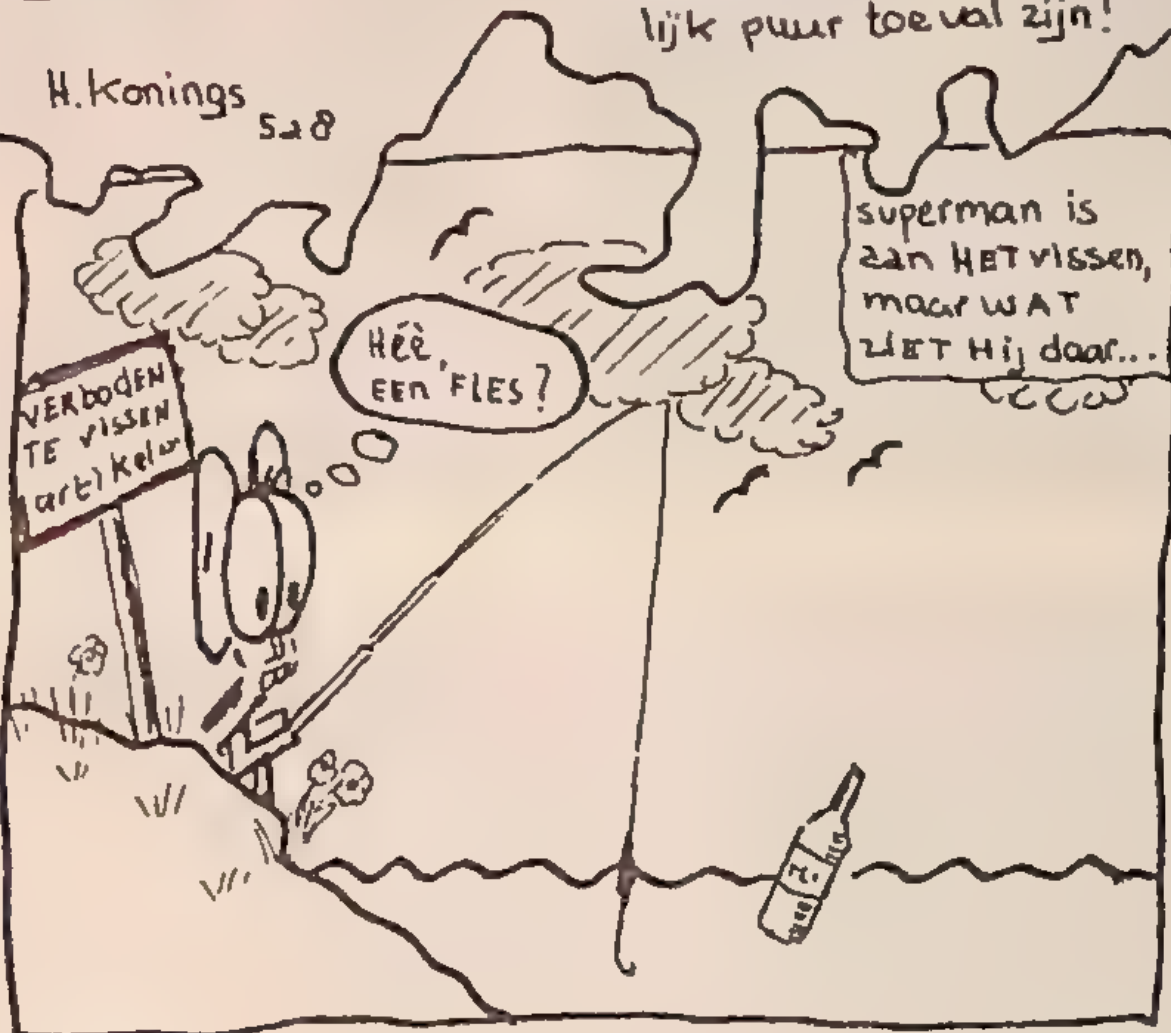 lijk puur toeval zijn!
H. Konings
528
superman is
aan HET vissen,
maar WAT
ziET Hij daar...
Héè,
EEN FLES?
VERBODEN
TE VISSEN
(art)